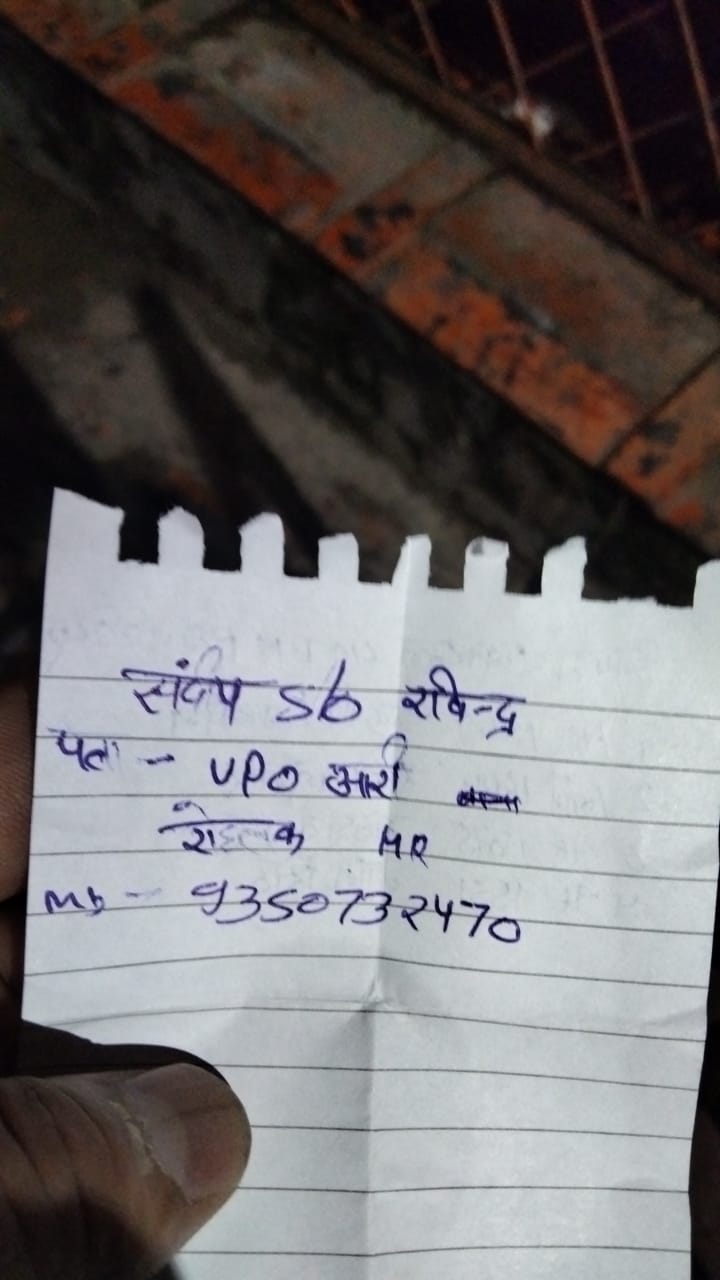 संदीप S/o रविन्द्र
पता - VPO
रोहतक HR
Mb - 9350732470